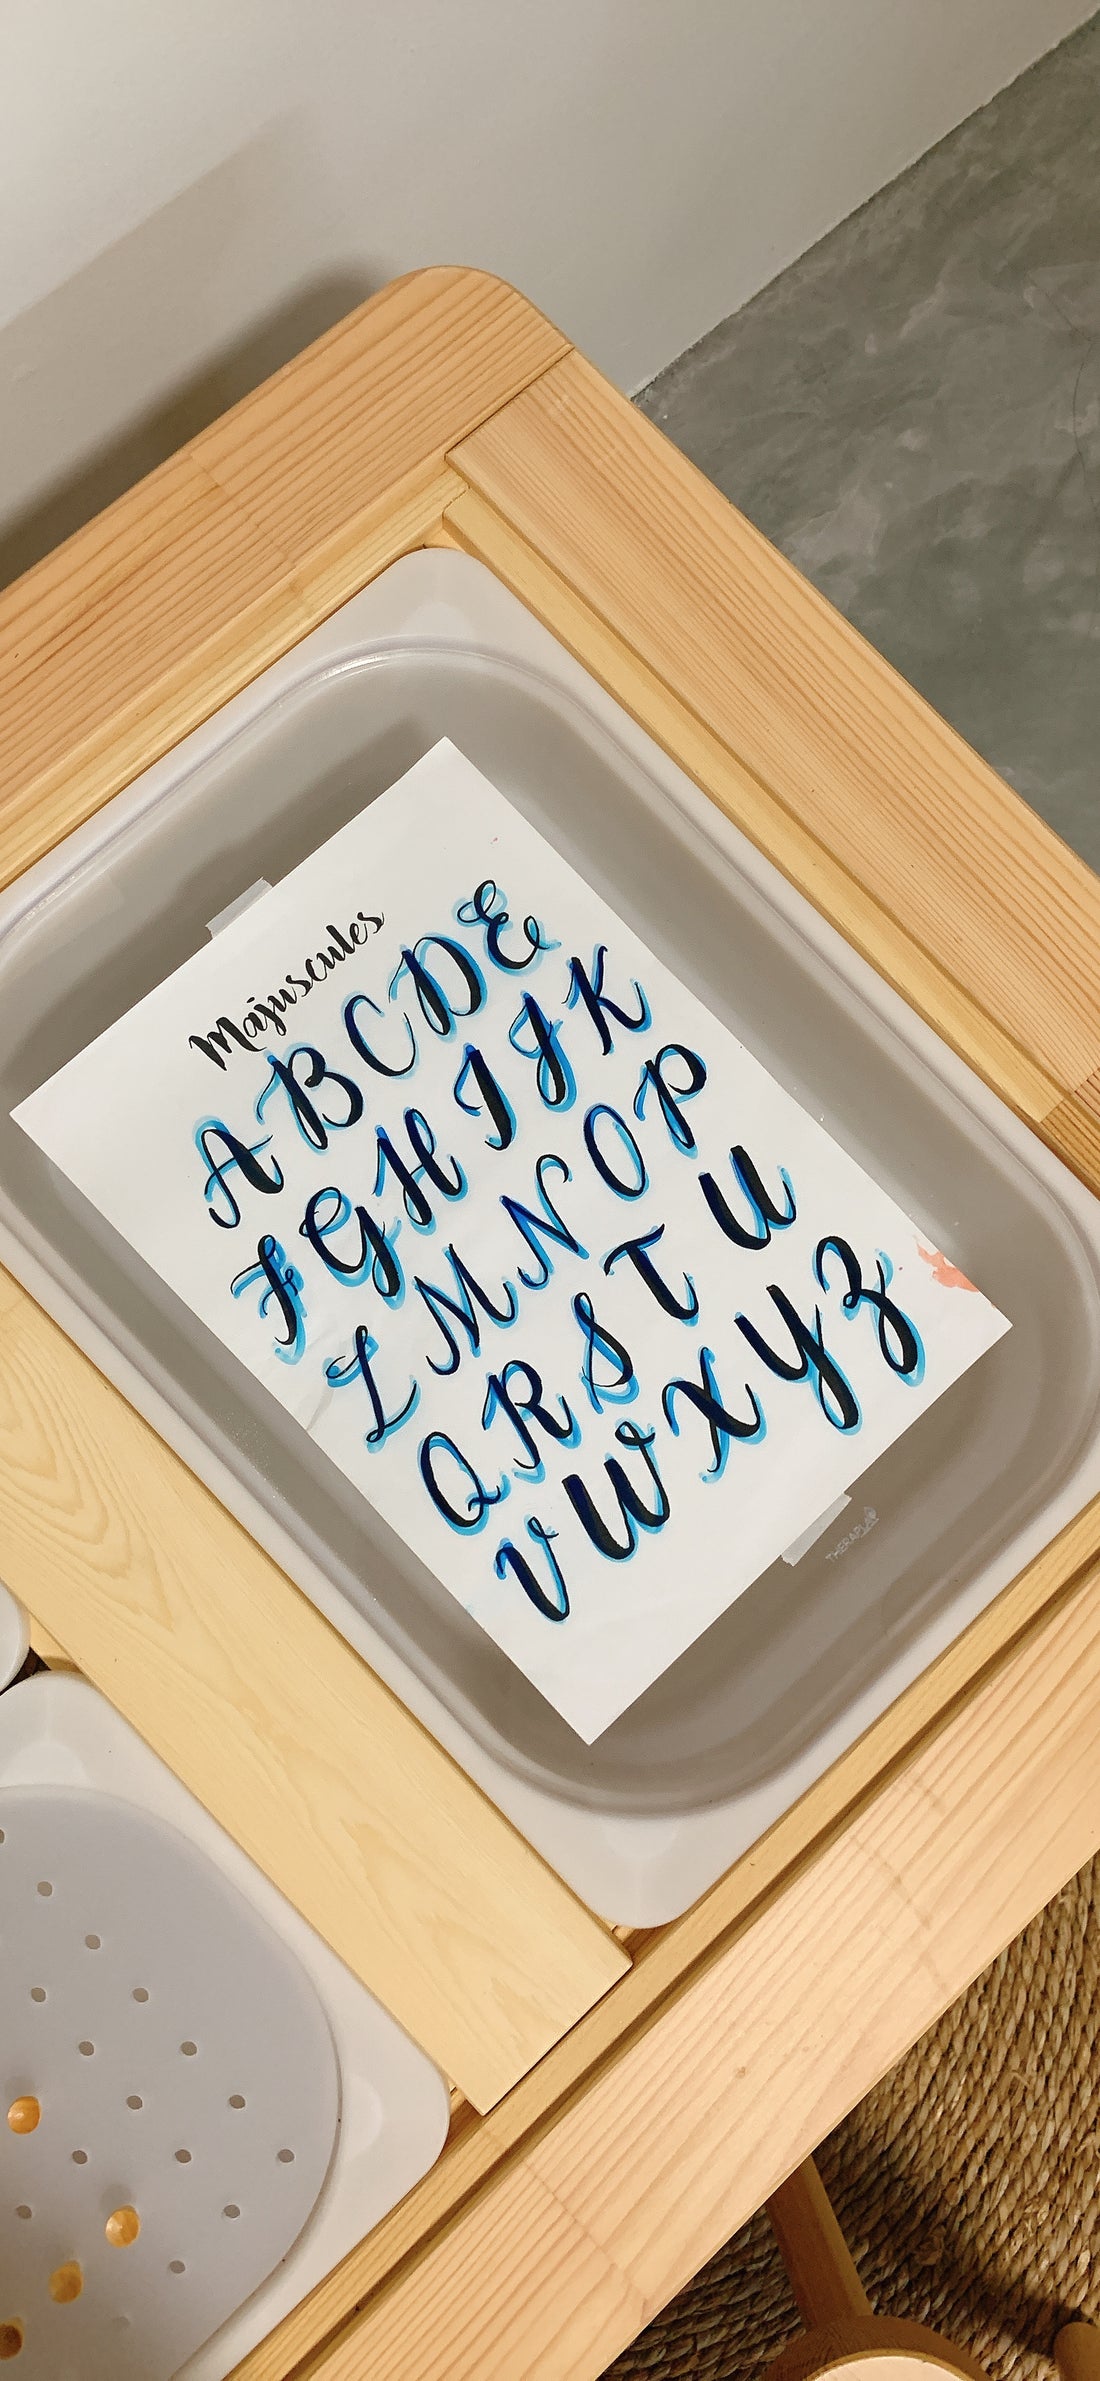 Majuscules
A B C D E
F G H I J K
L M N O P
Q R S T U
V W X Y Z
THERAPLAY